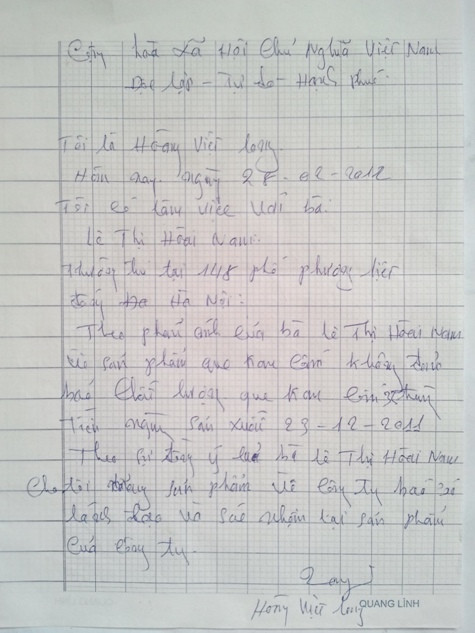 Cộng hoà Xã Hội Chủ Nghĩa Việt Nam
Độc lập - Tự do - Hạnh phúc.
Tôi là Hoàng Việt long.
Hôm nay. ngày 28-02-2012
Tôi có làm việc với bà.
Lê Thị Hoài Nam.
Thường trú tại 148 phố phương liệt
Hà Nội.
Theo phản ánh của bà lê Thị Hoài Nam
về sản phẩm que kem cốm không đảm
bảo chất lượng que kem cốm
Tiên ngày sản xuất 23-12-2011
Theo sự đồng ý bà lê Thị Hoài Nam
Cho tôi mang sản phẩm về công ty báo cáo
lãnh đạo và xác nhận lại sản phẩm
của công ty.
Long
Hoàng Việt long
QUANG LINH